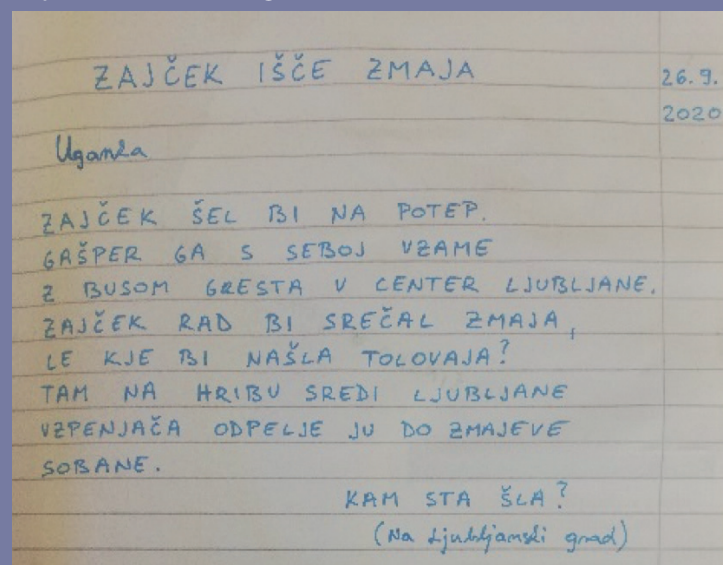 ZAJČEK IŠČE ZMAJA
26.9.
2020
Uganka
ZAJČEK ŠEL BI NA POTEP.
GAŠPER GA S SEBOJ VZAME
Z BUSOM GRESTA V CENTER LJUBLJANE.
ZAJČEK RAD BI SREČAL ZMAJA,
LE KJE BI NAŠLA TOLOVAJA?
TAM NA HRIBU SREDI LJUBLJANE
VZPENJAČA ODPELJE JU DO ZMAJEVE
SOBANE.
KAM STA ŠLA?
(Na Ljubljanski grad)